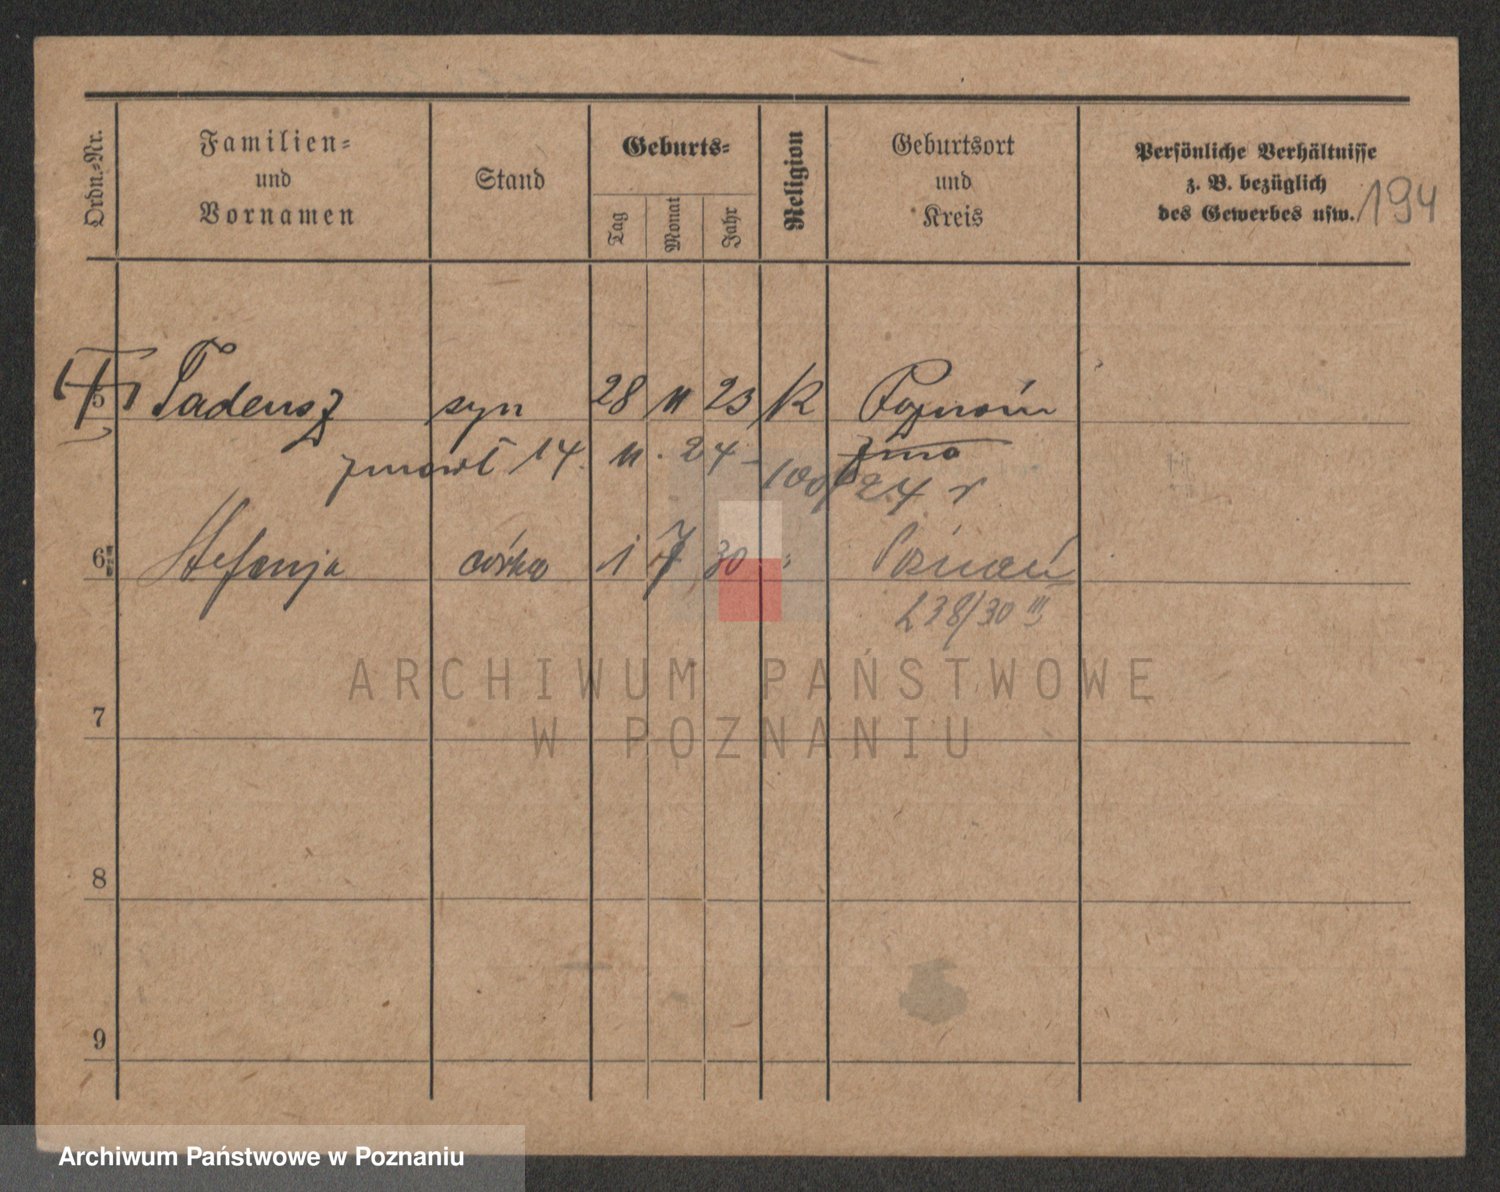 Ordn.-Nr.
Familien-
und
Vornamen
Stand
Geburts-
Tag
Monat
Jahr
Religion
Geburtsort
und
Kreis
Persönliche Verhältnisse
z. B. bezüglich
des Gewerbes usw.
194
5 Tadeusz syn 28 11 23 K Poznań
zmarł 14. 11. 24
24 r
6 Stefanja córka 1 7 30 " Poznań
238/30 III
ARCHIWUM PAŃSTWOWE
W POZNANIU
7
8
9
Archiwum Państwowe w Poznaniu